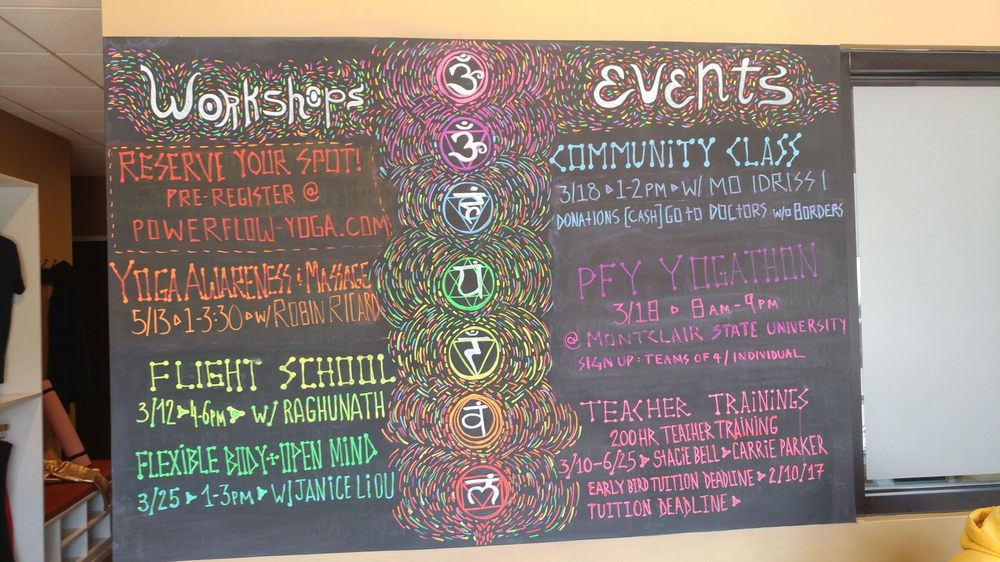 Workshops
RESERVE YOUR SPOT!
PRE-REGISTER @
POWERFLOW-YOGA.COM
YOGA AWARENESS & MASSAGE
5/13 ▹ 1-3:30 ▹ W/ ROBIN RICARD
FLIGHT SCHOOL
3/12 ▹ 4-6pm ▹ W/ RAGHUNATH
FLEXIBLE BODY + OPEN MIND
3/25 ▹ 1-3pm ▹ W/ JANICE LIOU
ॐ
ॐ
हं
यं
रं
वं
लं
EVENTS
COMMUNITY CLASS
3/18 ▹ 1-2PM ▹ W/ MO IDRISSI
DONATIONS [CASH] GO TO DOCTORS w/o BORDERS
PFY YOGATHON
3/18 ▹ 8AM-9PM
@ MONTCLAIR STATE UNIVERSITY
SIGN UP: TEAMS OF 4/INDIVIDUAL
TEACHER TRAININGS
200HR TEACHER TRAINING
3/10-6/25 ▹ STACIE BELL ▹ CARRIE PARKER
EARLY BIRD TUITION DEADLINE ▹ 2/10/17
TUITION DEADLINE ▹